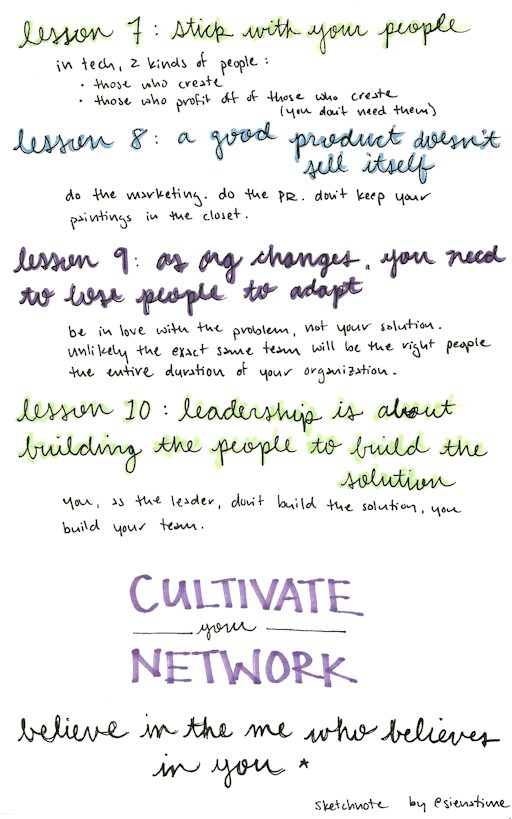 lesson 7: stick with your people
in tech, 2 kinds of people:
• those who create
• those who profit off of those who create
(you don't need them)
lesson 8: a good product doesn't
sell itself
do the marketing. do the PR. don't keep your
paintings in the closet.
lesson 9: as org changes, you need
to lose people to adapt
be in love with the problem, not your solution.
unlikely the exact same team will be the right people
the entire duration of your organization.
lesson 10: leadership is about
building the people to build the
solution
you, as the leader, don't build the solution, you
build your team.
CULTIVATE
your
NETWORK
believe in the me who believes
in you *
sketchnote by @sienatime